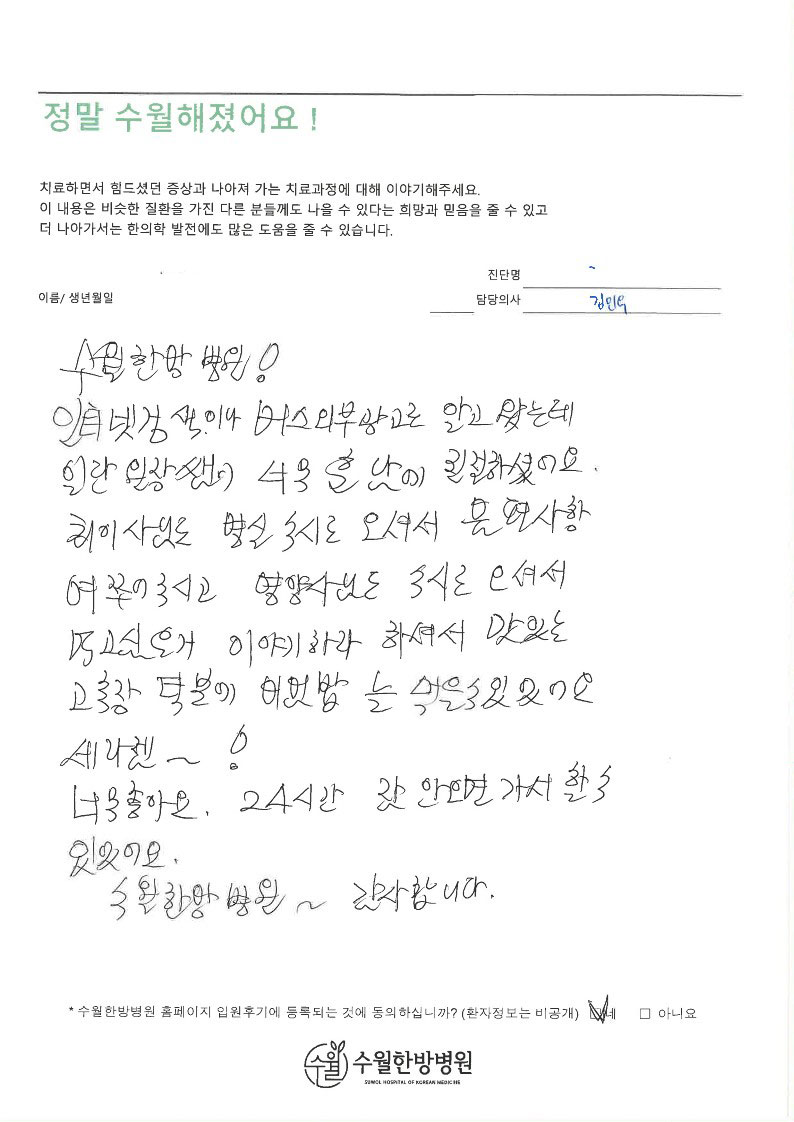 정말 수월해졌어요 !
치료하면서 힘드셨던 증상과 나아져 가는 치료과정에 대해 이야기해주세요.
이 내용은 비슷한 질환을 가진 다른 분들께도 나을 수 있다는 희망과 믿음을 줄 수 있고
더 나아가서는 한의학 발전에도 많은 도움을 줄 수 있습니다.
진단명
이름/ 생년월일
담당의사
수월한방병원!
인터넷검색이나 버스외부광고로 알고 왔는데
원장쌤이 너무 친절하셨어요.
병실 수시로 오셔서 불편사항
여쭈어주시고 영양사님도 수시로 오셔서
이야기하라 하셔서 맛있는
고추장 덮밥 는 먹을수있었어요
세라젬~!
너무좋아요. 24시간 잠 안오면 가서 할수
있었어요.
수월한방병원~ 감사합니다.
* 수월한방병원 홈페이지 입원후기에 등록되는 것에 동의하십니까? (환자정보는 비공개) 네 아니요
수월 수월한방병원
SUWOL HOSPITAL OF KOREAN MEDICINE